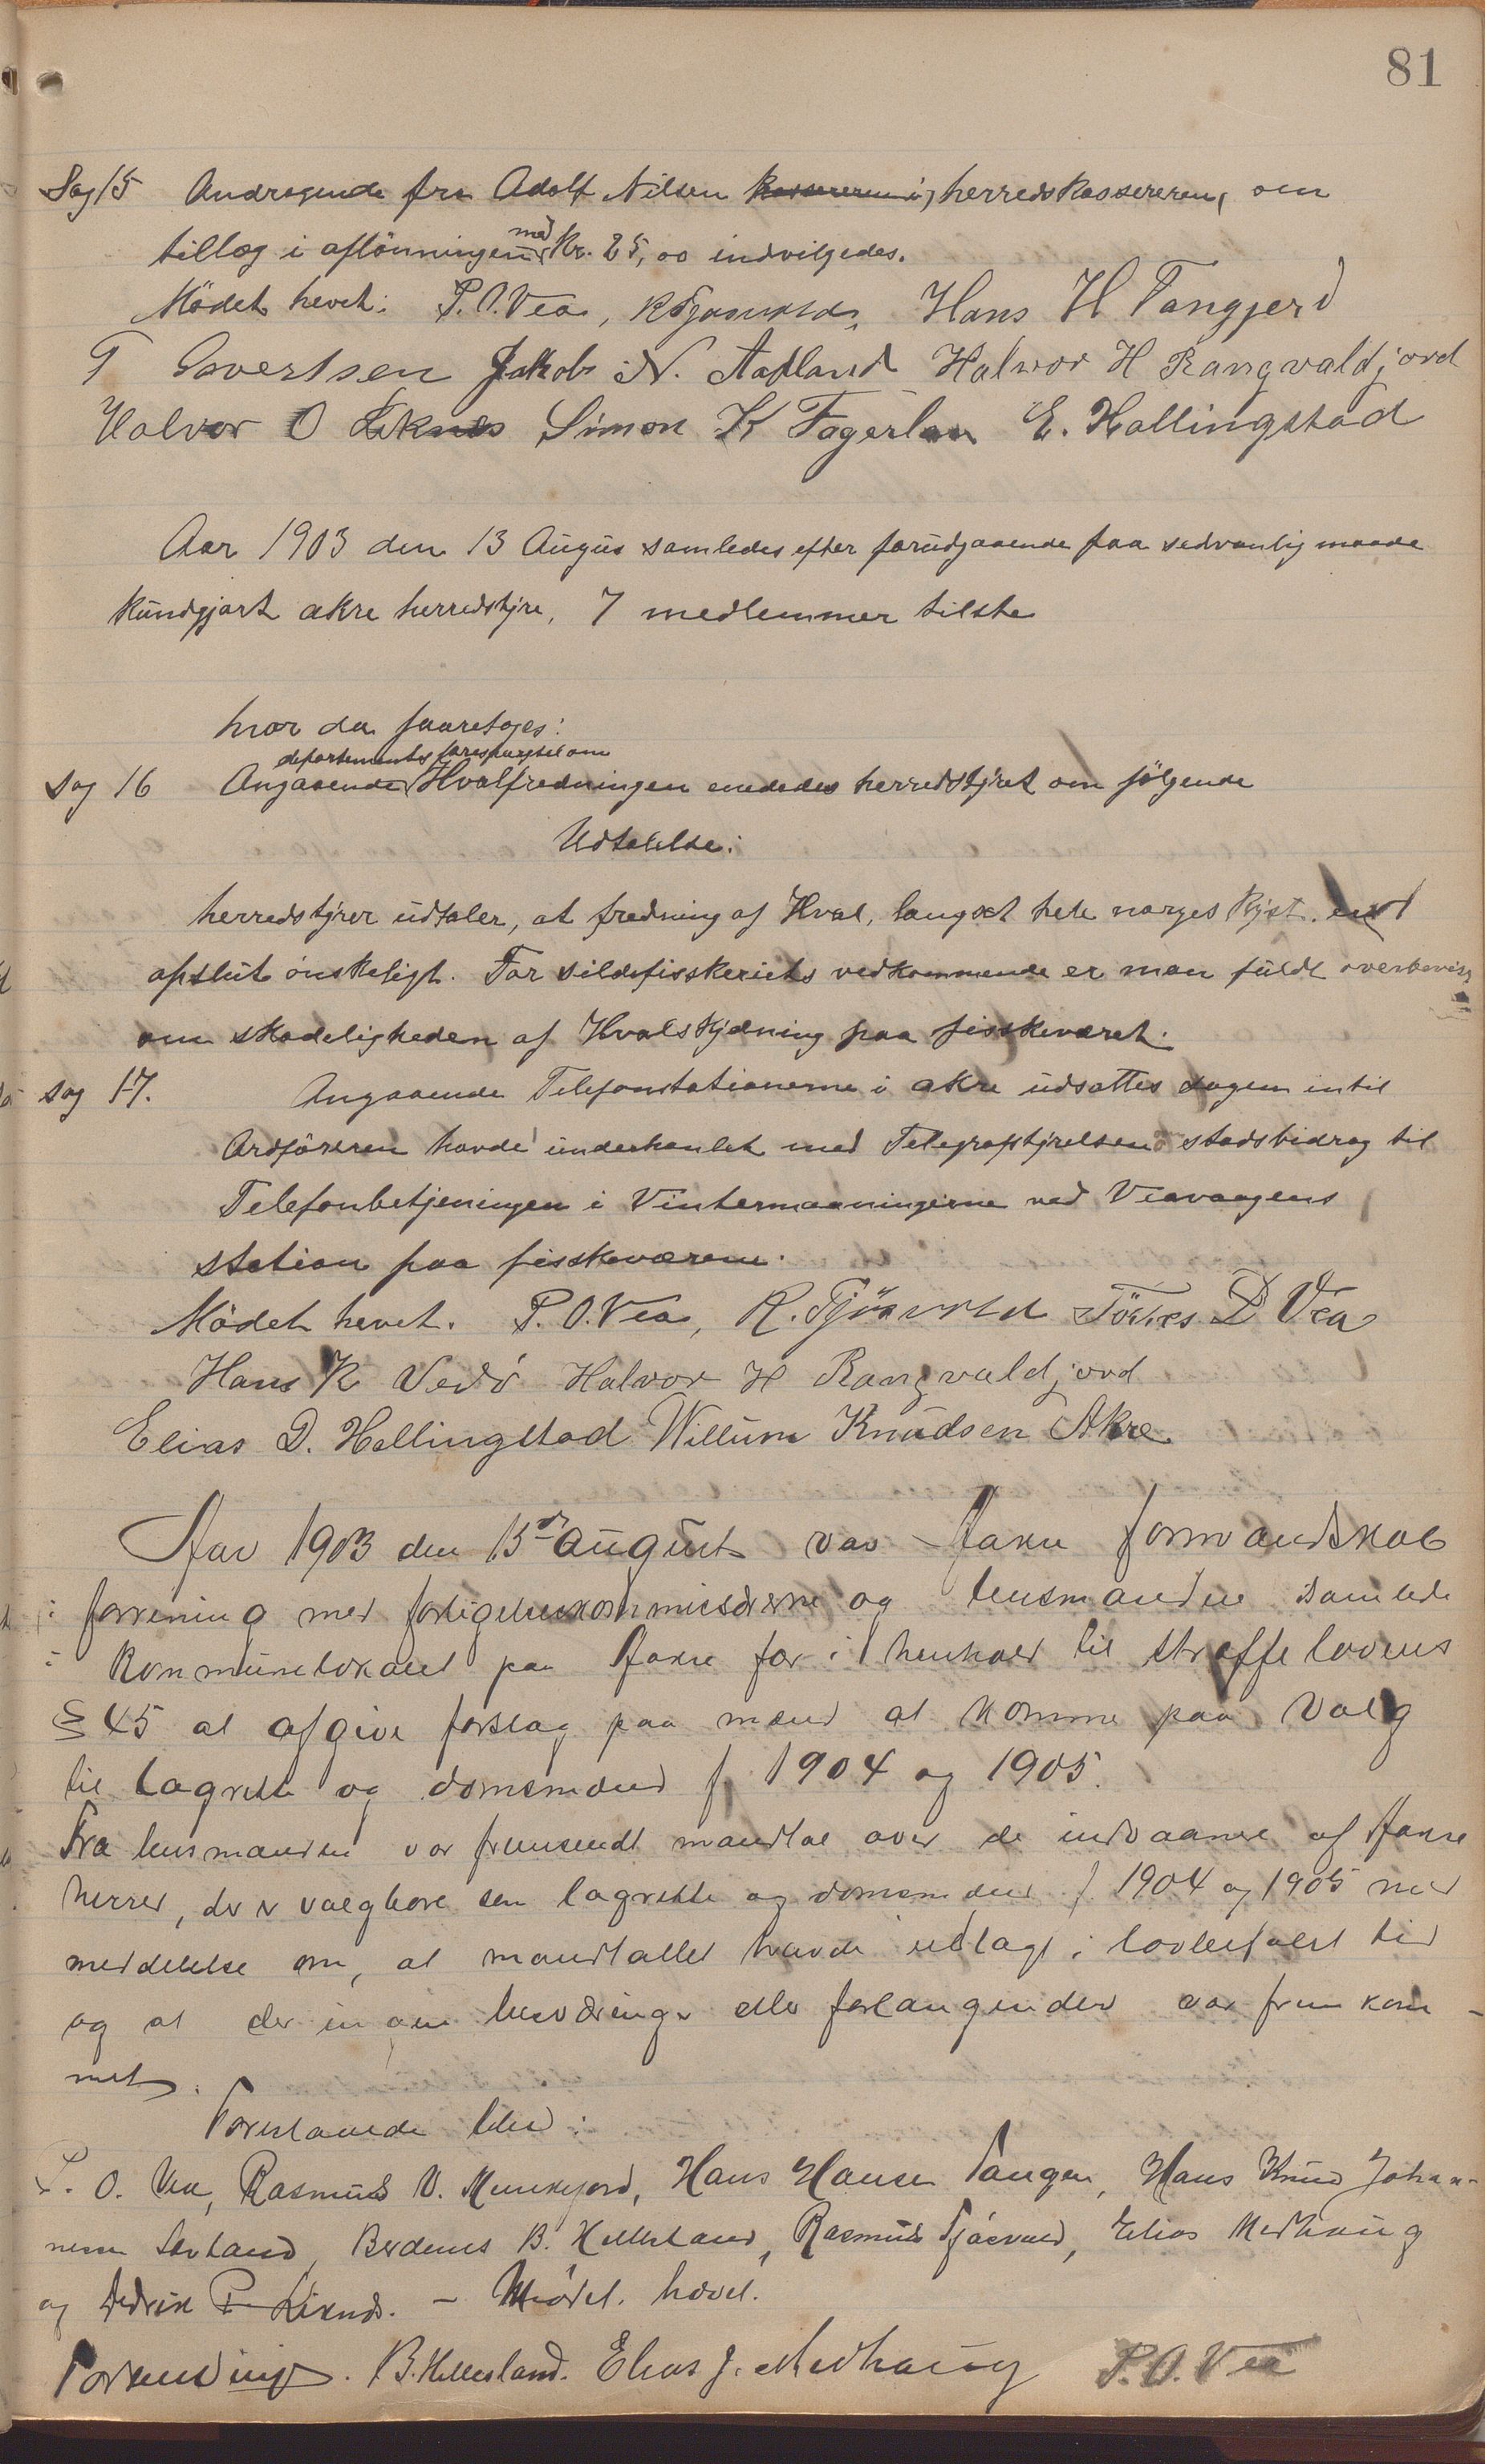 81
Sag 15 Andragende fra Adolf Nilsen kassereren i, herredskassereren, om
med
tillæg i aflönningen Kr. 25,00 indvilgedes.
Mödet hevet. P. O. Vea, R Tjøsvold, Hans H Tangjerd
T Sivertsen Jakob N. Aadland Halvor H Rangvaldjord
Halvor O Liknes Simon K Fagerlan E. Hallingstad
Aar 1903 den 13 Augus samledes efter forudgaaende paa sedvanlig maade
kundgjort akre herredstyre, 7 medlemmer tilste
hvor da faaretoges:
departementes foresporgsel om
sag 16 Angaaende Hvalfredningen enededes herredstyret om følgende
Udtalelse:
herredstyrer udtaler, at fredning af Hval, langset hele norges kyst.
afslut ónskeligt. For sildefisskeriets vedkommende er man fuldt overbevist
om skadeligheden af Hvalskydning paa fisskeværet.
sag 17. Angaaende Telefonstationerne i akre udsattes sagen intil
Ordföreren havde underhanlet med Telegrafstyrelsen stadsbidrag til
Telefonbetjeningen i Vintermaaningerne ved Veavaagens
station paa fisskeværene.
Mödet hevet. P. O. Vea, R. Tjøsvold Tönnes D Vea
Hans K Vedö Halvor H Rangvaldjord
Elias D. Hallingstad Willum Knudsen Akre
Aar 1903 den 13de August var Aakre formandskab
i forening med forligelseskommissærerne og lensmanden samlede
i kommunelokalet paa Aakre for i henhold til straffelovens
§ 45 at afgive forslag paa mænd at komme paa Valg
til lagrette og domsmænd f 1904 og 1905.
Fra lensmanden var fremsendt mandtal over de indvaanere af Aakre
herred, der er valgbare som lagrette og domsmænd f 1904 og 1905 med
meddelelse om, at mandtallet havde udlagt i lovbefalet tid
og at der ingen besværinger eller forlangender var fremkom-
met.
Foreslaaede blev:
P. O. Vea, Rasmus V. Munkejord, Hans Hansen Tangen, Hans Knud Johan-
nesen Sevland, Berdenes B. Hellesland, Rasmus Tjösvold, Elias Medhaug
og Didrik P Liknes. – Mødet hævet.
B. Hellesland. Elias J. Medhaug P. O. Vea